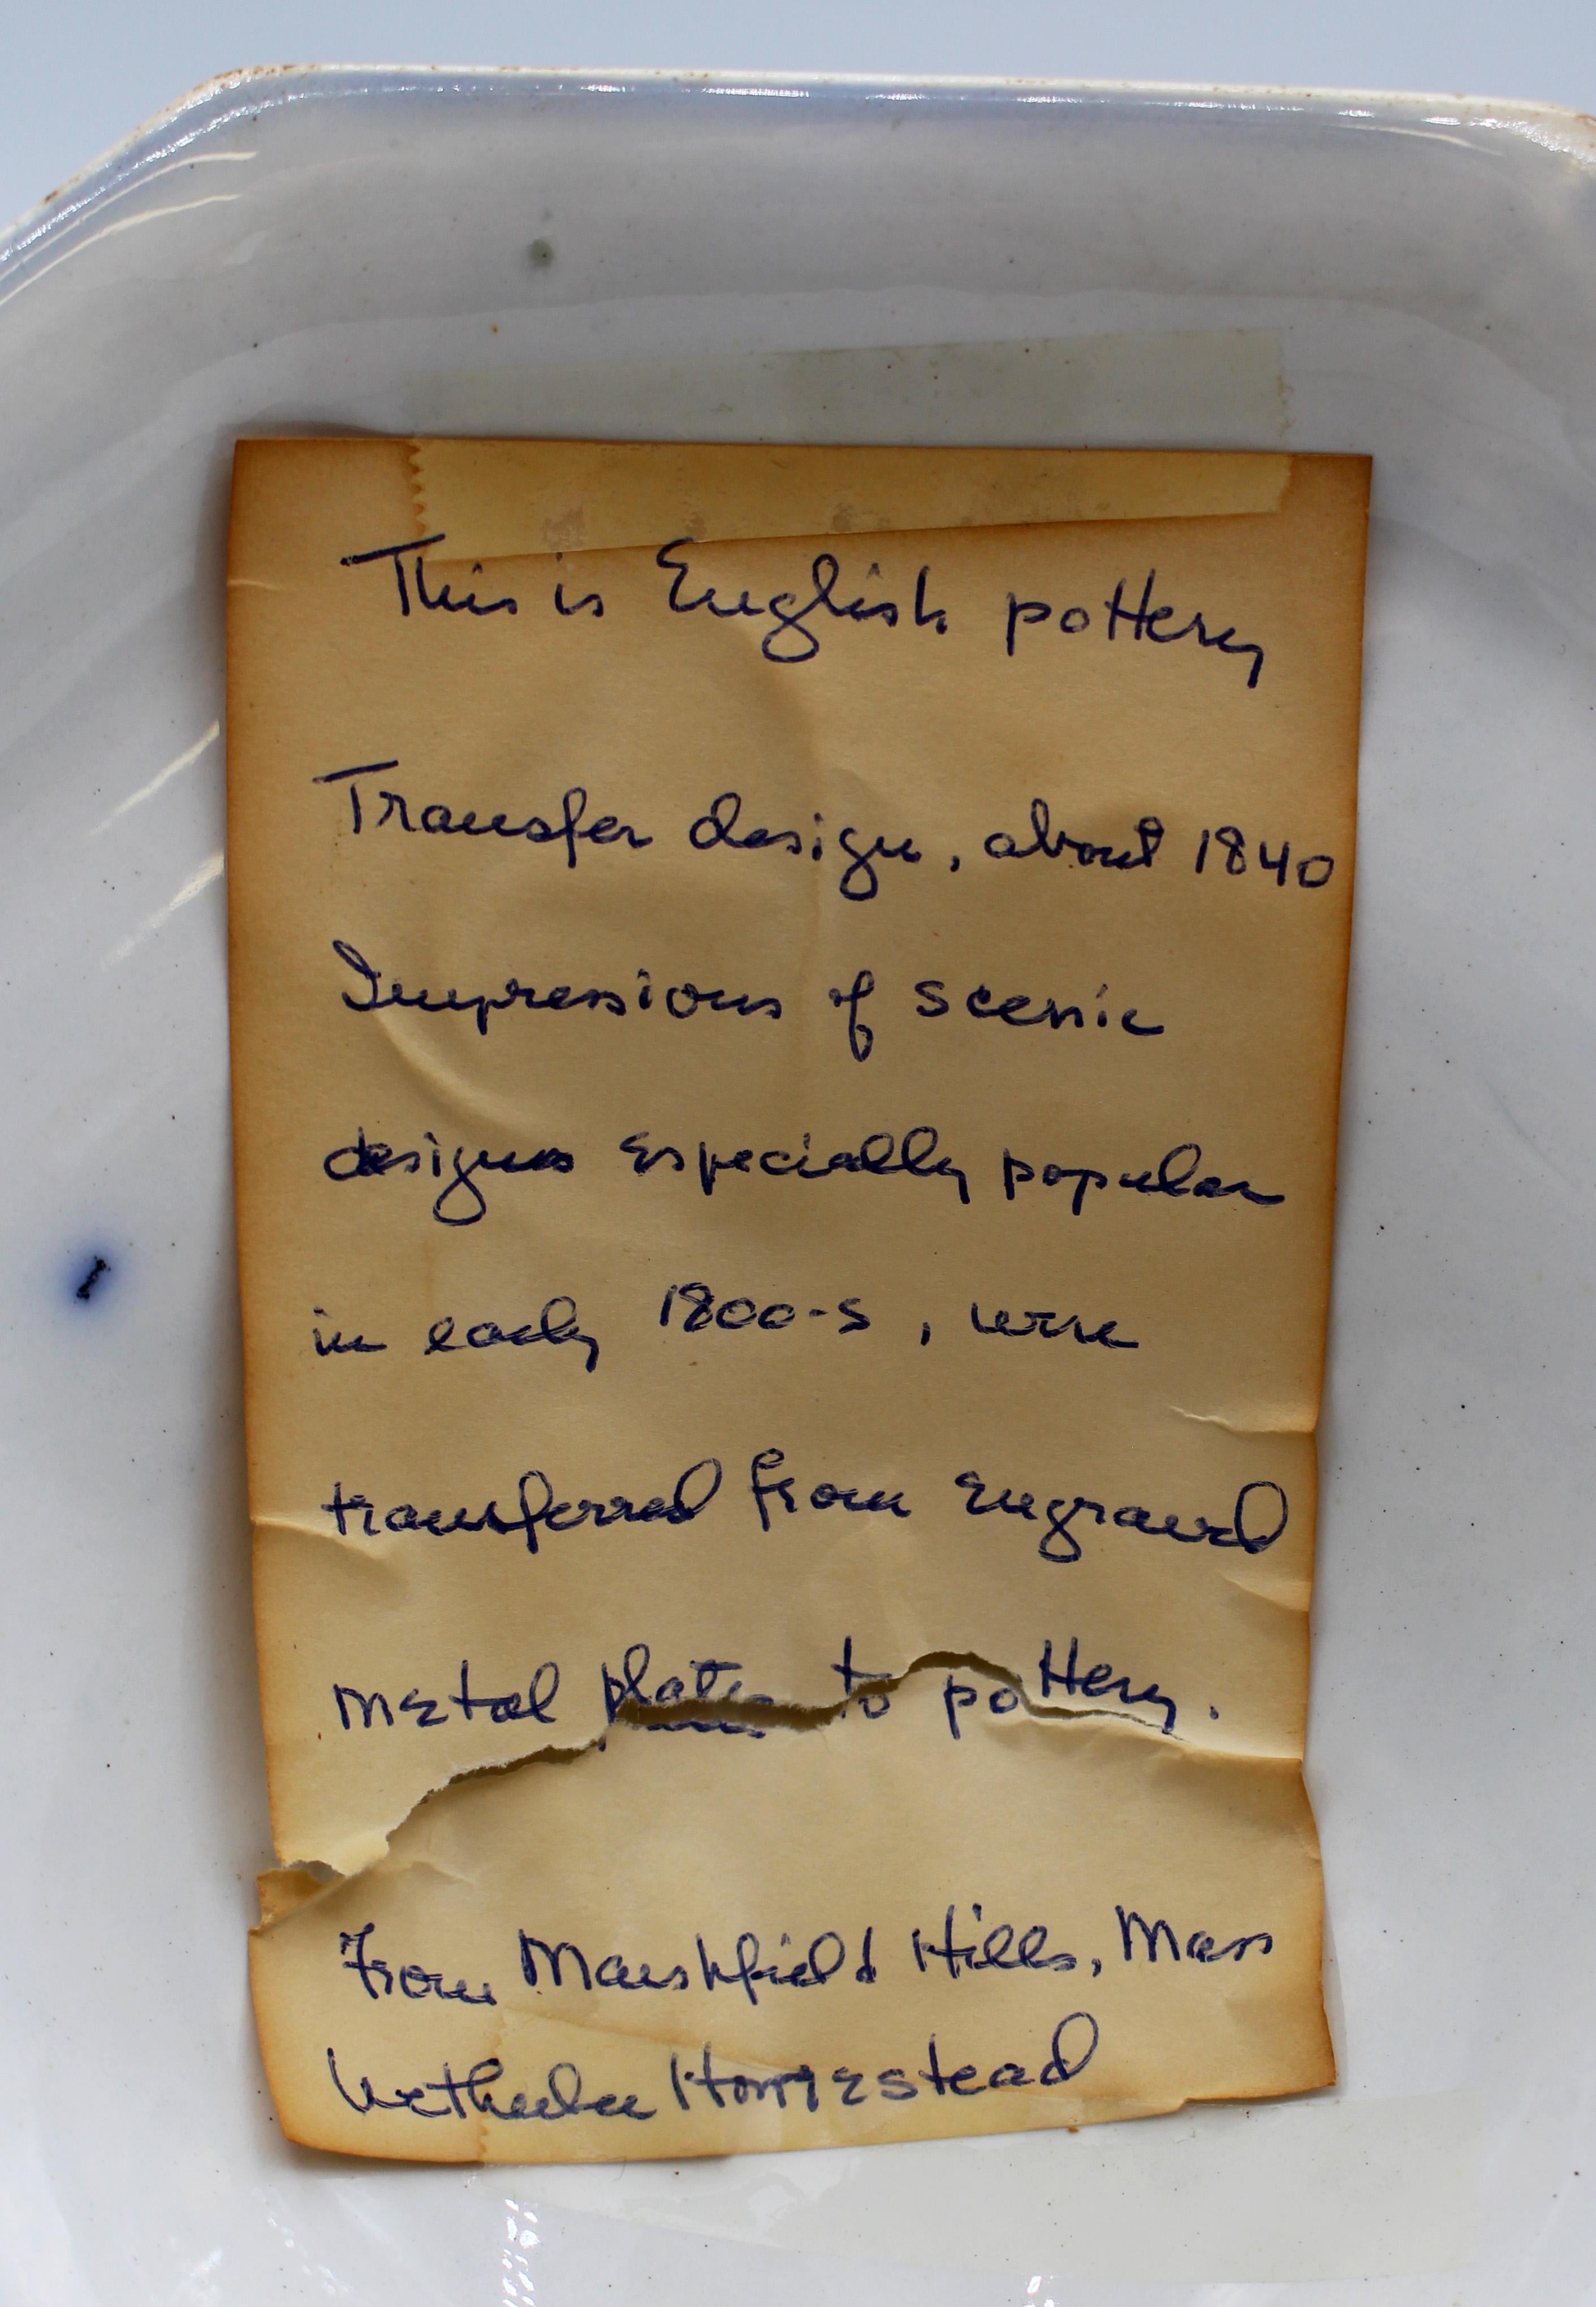 This is English pottery
Transfer design, about 1840
Impressions of scenic
designs especially popular
in early 1800-s, were
transferred from Engraved
metal plates to pottery.
From Marshfield Hills, Mass
Homestead